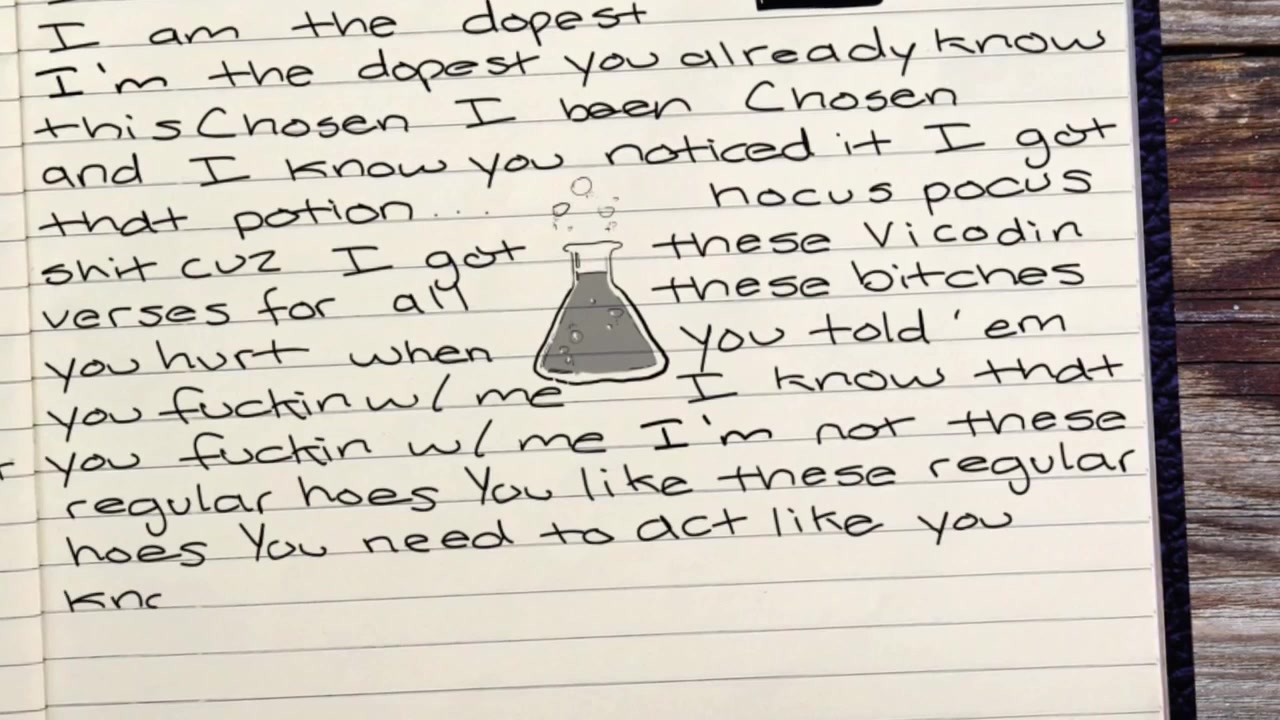 I am the dopest
I'm the dopest you already know
this Chosen I been Chosen
and I know you noticed it I got
that potion... hocus pocus
shit cuz I got these Vicodin
verses for all these bitches
you hurt when you told 'em
you fuckin w/ me I know that
you fuckin w/ me I'm not these
regular hoes You like these regular
hoes You need to act like you
kno